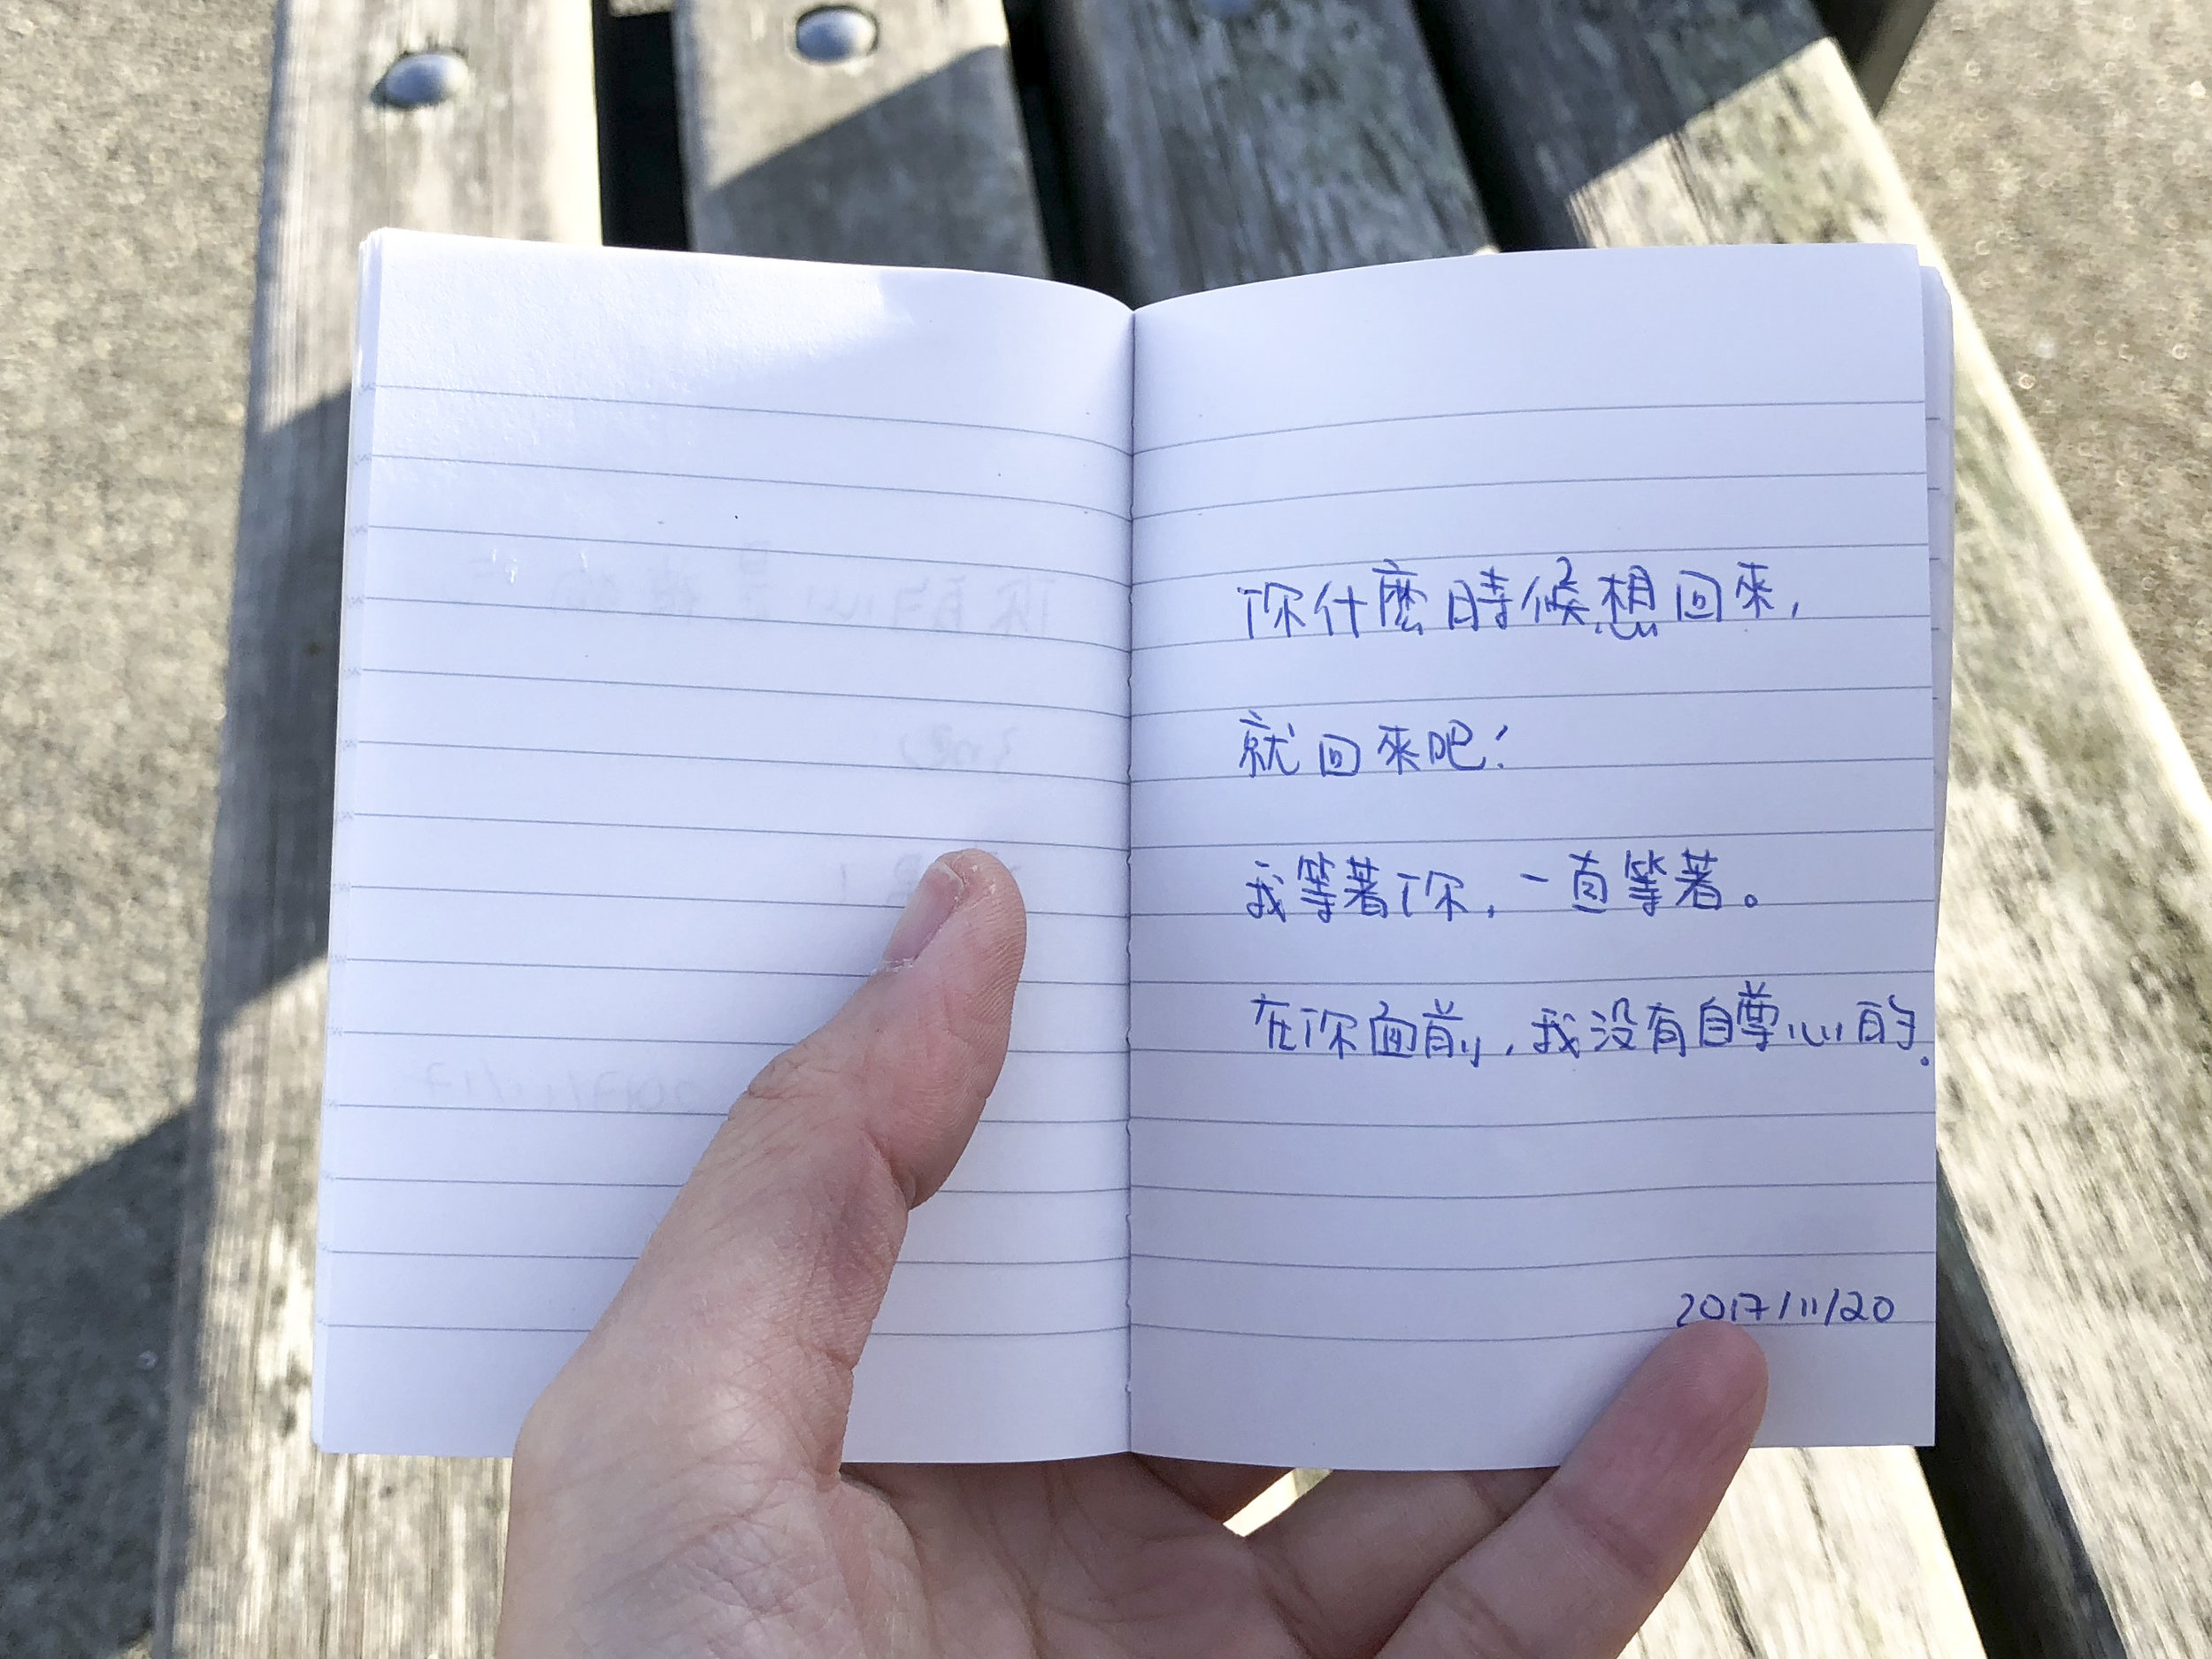 你什麼時候想回來,
就回來吧!
我等著你,一直等著。
在你面前,我沒有自尊心的.
2017/11/20